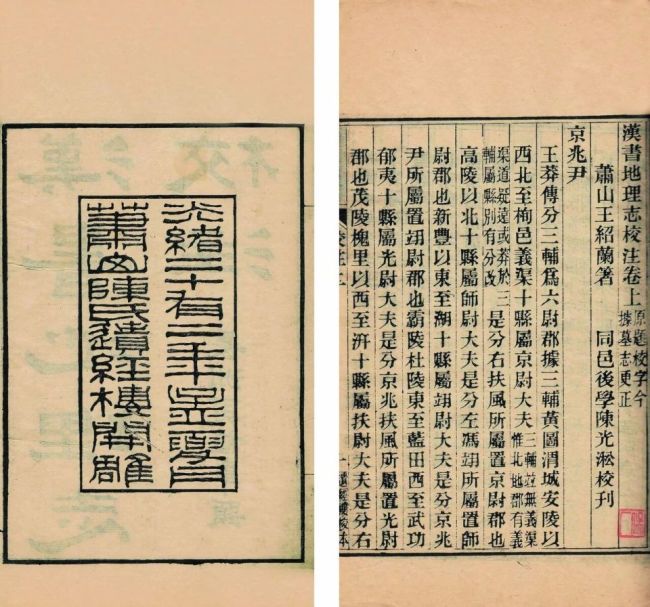 光緒三十有二年孟夏月
蕭山陳氏遺經樓開雕
漢書地理志校注卷上 原題校字今據墓志更正
蕭山王紹蘭著 同邑後學陳光淞校刊
京兆尹
王莽傳分三輔爲六尉郡據三輔黃圖渭城安陵以
西北至栒邑義渠十縣屬京尉大夫 三輔並無義渠惟北地郡有義
渠道疑遠或莽於三輔屬縣別有分改 是分右扶風所屬置京尉郡也
高陵以北十縣屬師尉大夫是分左馮翊所屬置師
尉郡也新豐以東至湖十縣屬翊尉大夫是分京兆
尹所屬置翊尉郡也霸陵杜陵東至藍田西至武功
郁夷十縣屬光尉大夫是分京兆扶風所屬置光尉
郡也茂陵槐里以西至汧十縣屬扶尉大夫是分右
校注上 一 遺經樓校本